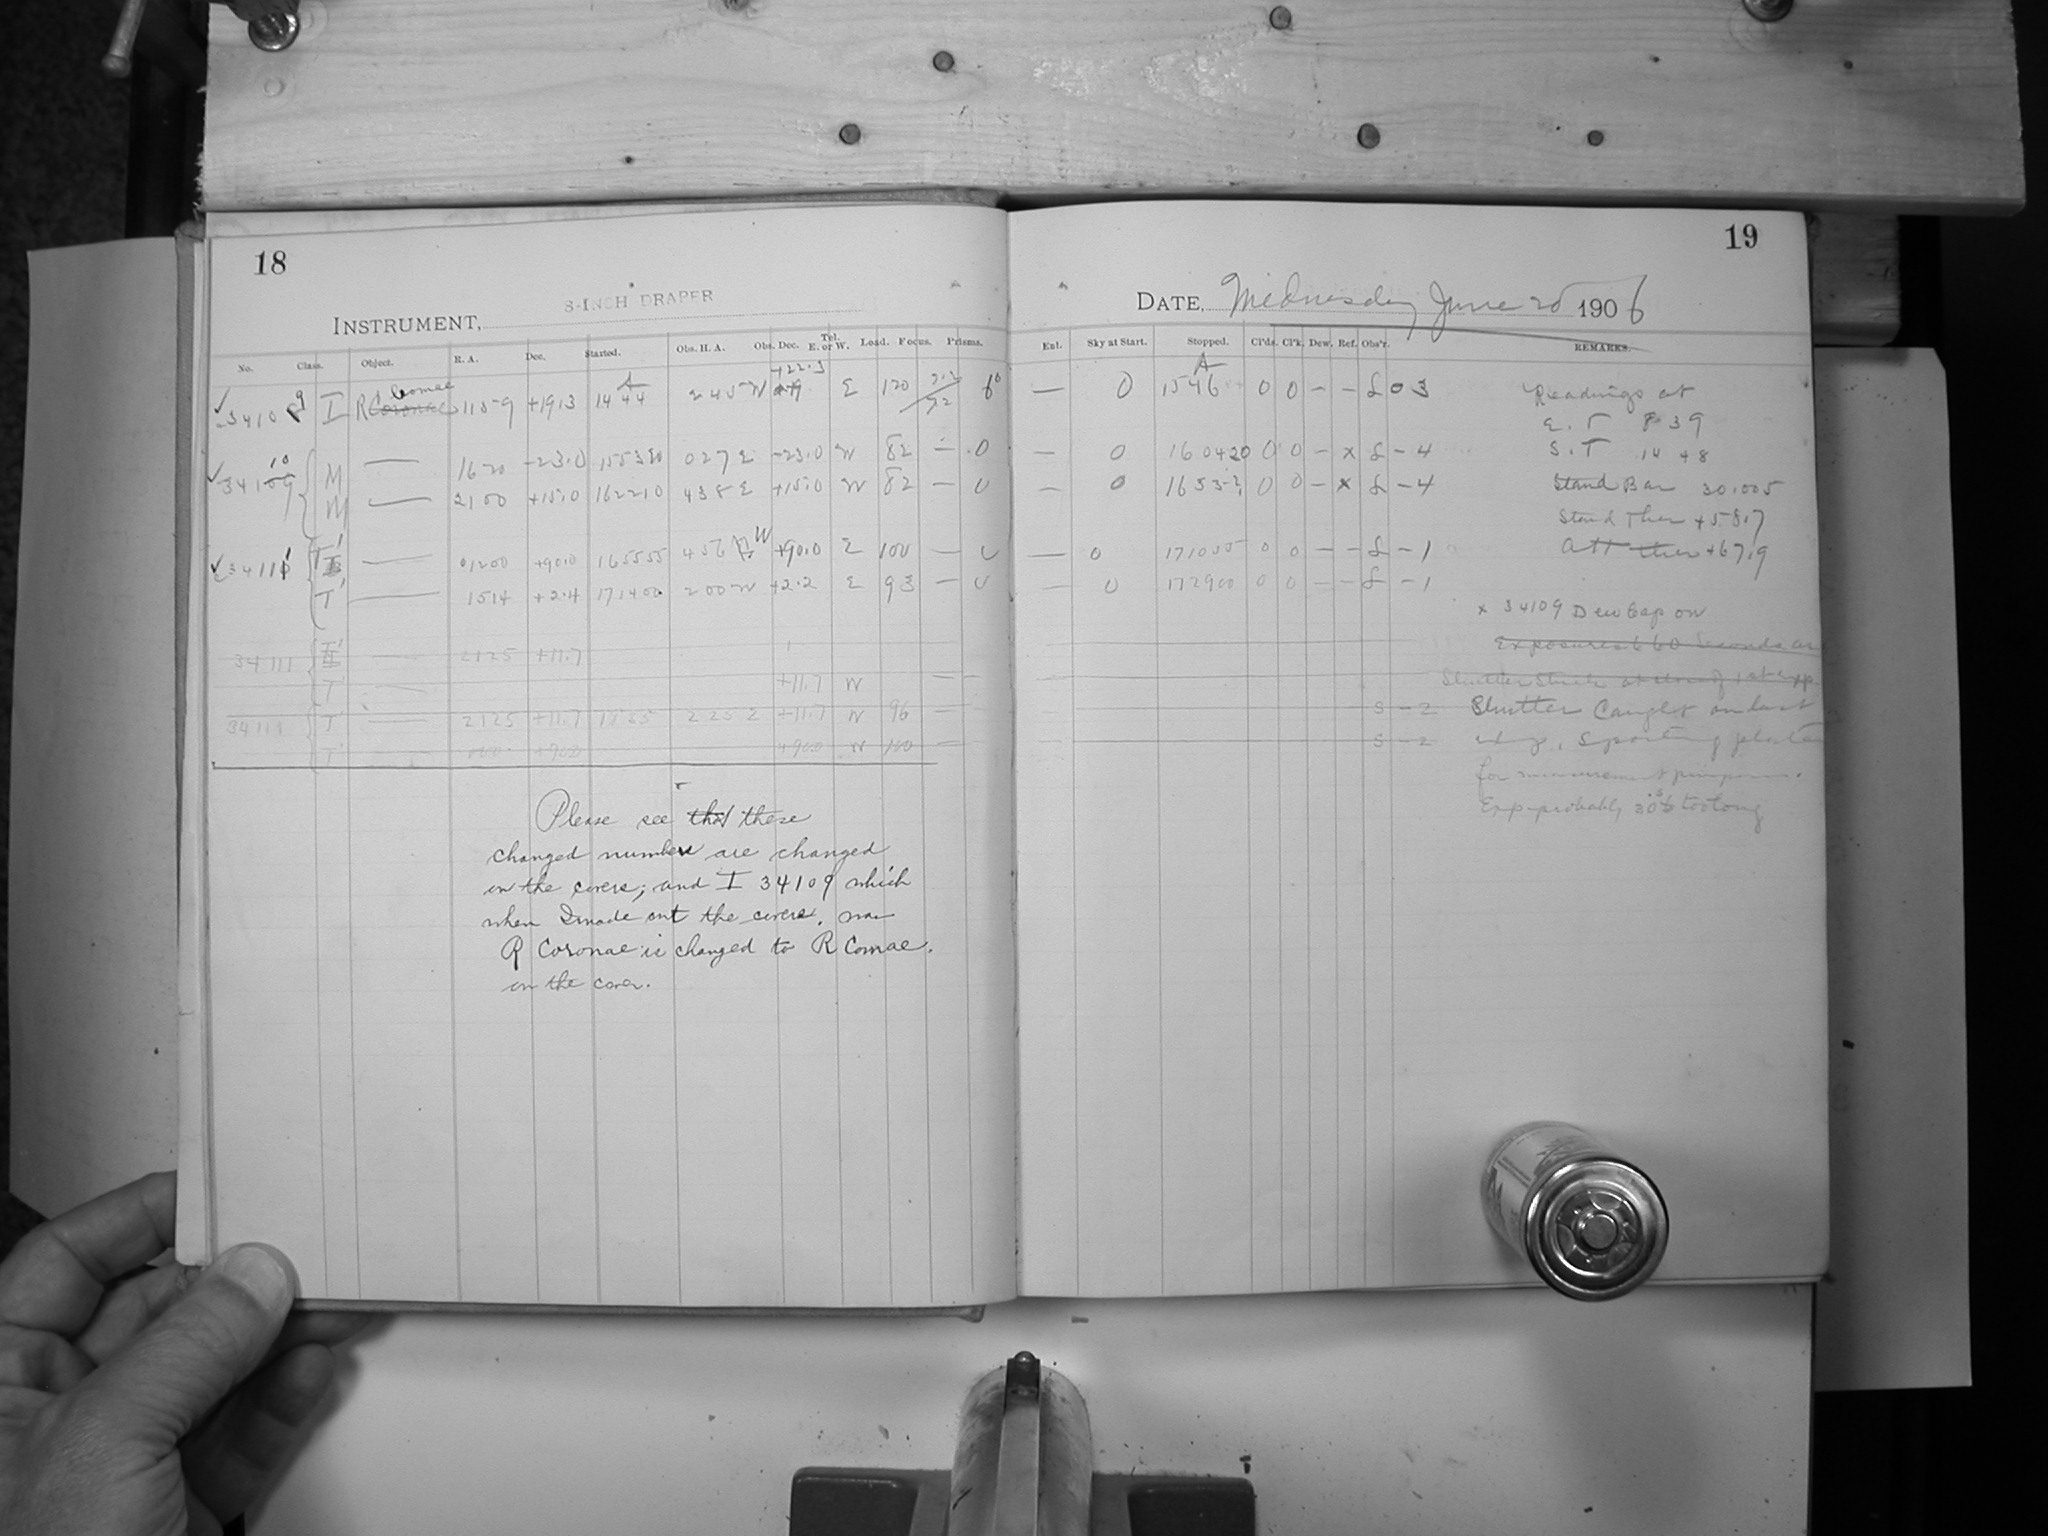 18
8-INCH DRAPER
INSTRUMENT,
No. Class. Object. R. A. Dec. Started. Obs. H. A. Obs. Dec. Tel. E. or W. Load. Focus. Prisms.
34109 I R Comae 1159 +19.3 14 44 2 45 W +22.3 E 120
34110 M — 1620 -23.0 155320 027 E -23.0 W 82 — 0
M — 2100 +15.0 162210 438 E +15.0 W 82 — 0
34111 T' — 01200 +90.0 165555 456 W +90.0 E 100 — 0
T' — 1514 +2.4 171400 200 W +2.2 E 93 — 0
34111 — 2125 +11.7
T — +11.7 W — —
34111 T 2125 +11.7 225 E +11.7 W 96 —
T' — +90.0 +90.0 W 100 —
Please see that these
changed numbers are changed
in the covers; and I 34109 which
when I made out the covers, was
R Coronae is changed to R Comae.
in the cover.
19
DATE, Wednesday June 20 1906
Ent. Sky at Start. Stopped. Cl'ds. Cl'k. Dew. Ref. Obs'r. REMARKS.
— 0 1546 0 0 — — L 03 Readings at
E. T 8 39
— 0 160420 0 0 — x L -4 S. T 14 48
— 0 0 0 — x L -4 Stand Bar 30.005
Stand Ther +58.7
— 0 0 0 — — L -1 Att ther +67.9
— 0 172900 0 0 — — L -1
x 34109 Dew Cap on
Exposures 660 Seconds as
Shutter Stuck at
S -2 Shutter Caught on last
S -2 exp, Spoiling plate
for measurement purposes.
Exp probably 30s too long